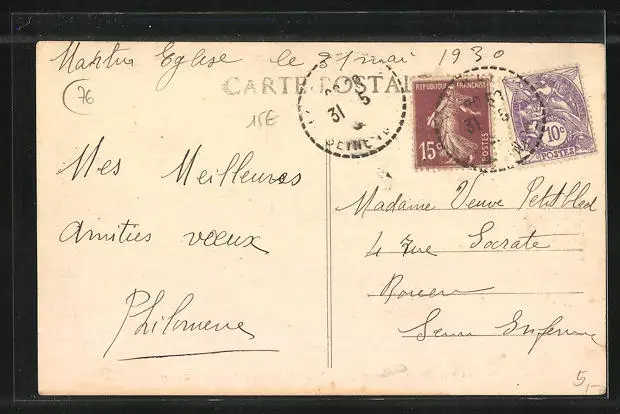 Martin Eglise le 31 mai 1930
CARTE POSTALE
76
15E
31 5
REPUBLIQUE FRANÇAISE
15c
POSTES
10c
POSTES
Mes Meilleures
Amitiés vœux
Philomene
Madame Veuve Petitbled
4 rue Socrate
Rouen
Seine
5,-